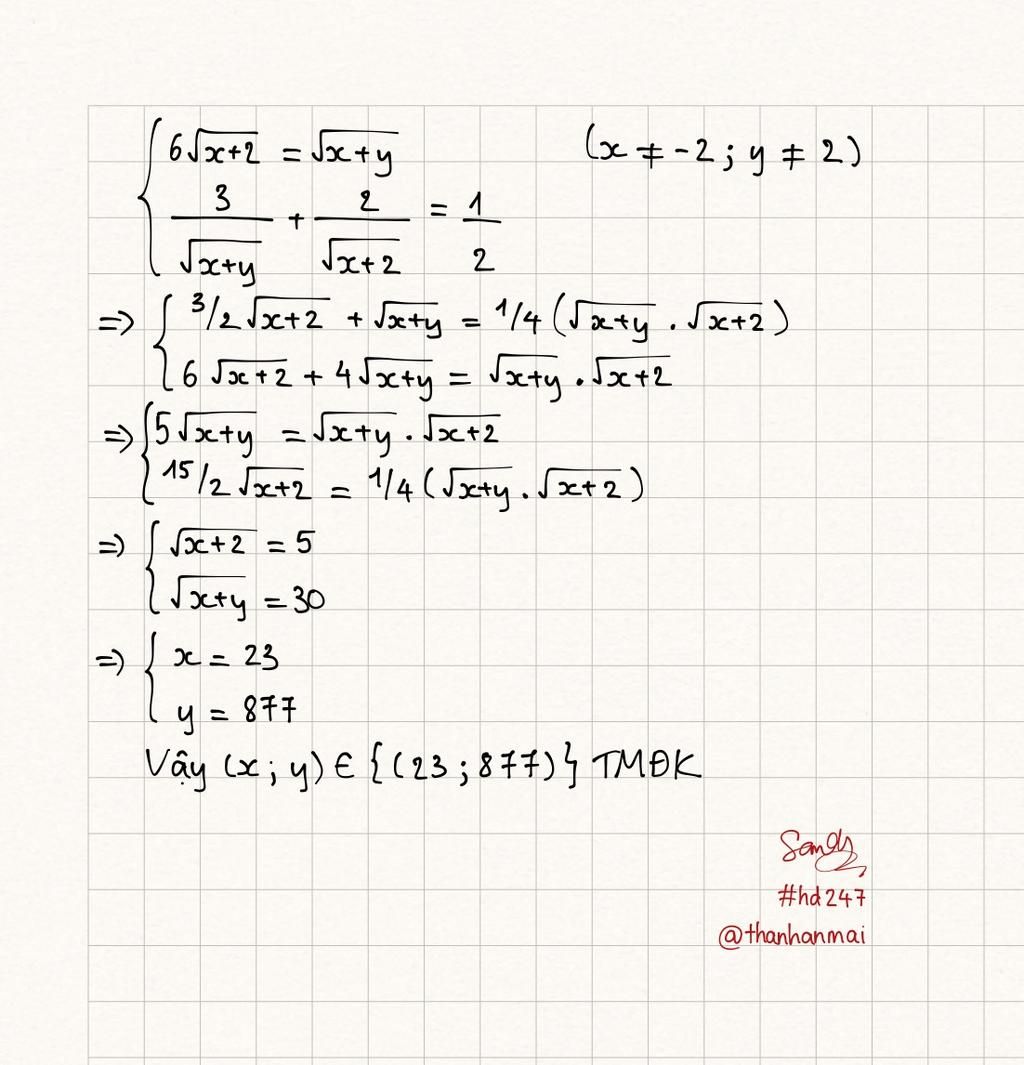 6√x+2 = √x+y (x ≠ -2 ; y ≠ 2)
3/√x+y + 2/√x+2 = 1/2
=> 3/2 √x+2 + √x+y = 1/4 (√x+y . √x+2)
6 √x+2 + 4 √x+y = √x+y . √x+2
=> 5 √x+y = √x+y . √x+2
15/2 √x+2 = 1/4 (√x+y . √x+2)
=> √x+2 = 5
√x+y = 30
=> x = 23
y = 877
Vậy (x ; y) ∈ {(23 ; 877)} TMĐK
Sandy
#hd247
@thanhanmai